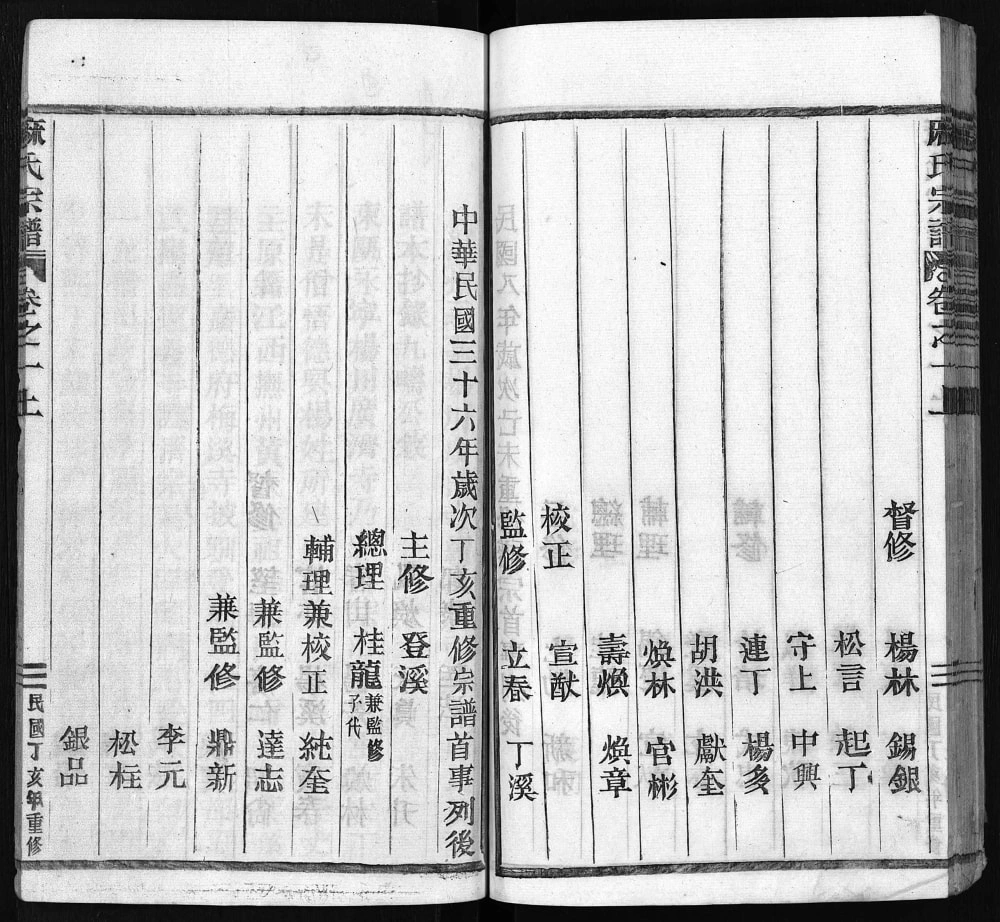 麻氏宗譜
卷之一上
督修 楊林 錫銀
松言 起丁
守上 中興
連丁 楊多
胡洪 獻奎
煥林 官彬
壽煥 煥章
校正 宣猷
監修 立春 丁溪
中華民國三十六年歲次丁亥重修宗譜首事列後
主修 登溪
總理 桂龍 兼監修 子代
輔理兼校正 純奎
兼監修 達志
兼監修 鼎新
李元
松柱
銀品
麻氏宗譜
卷之一上
民國丁亥年重修